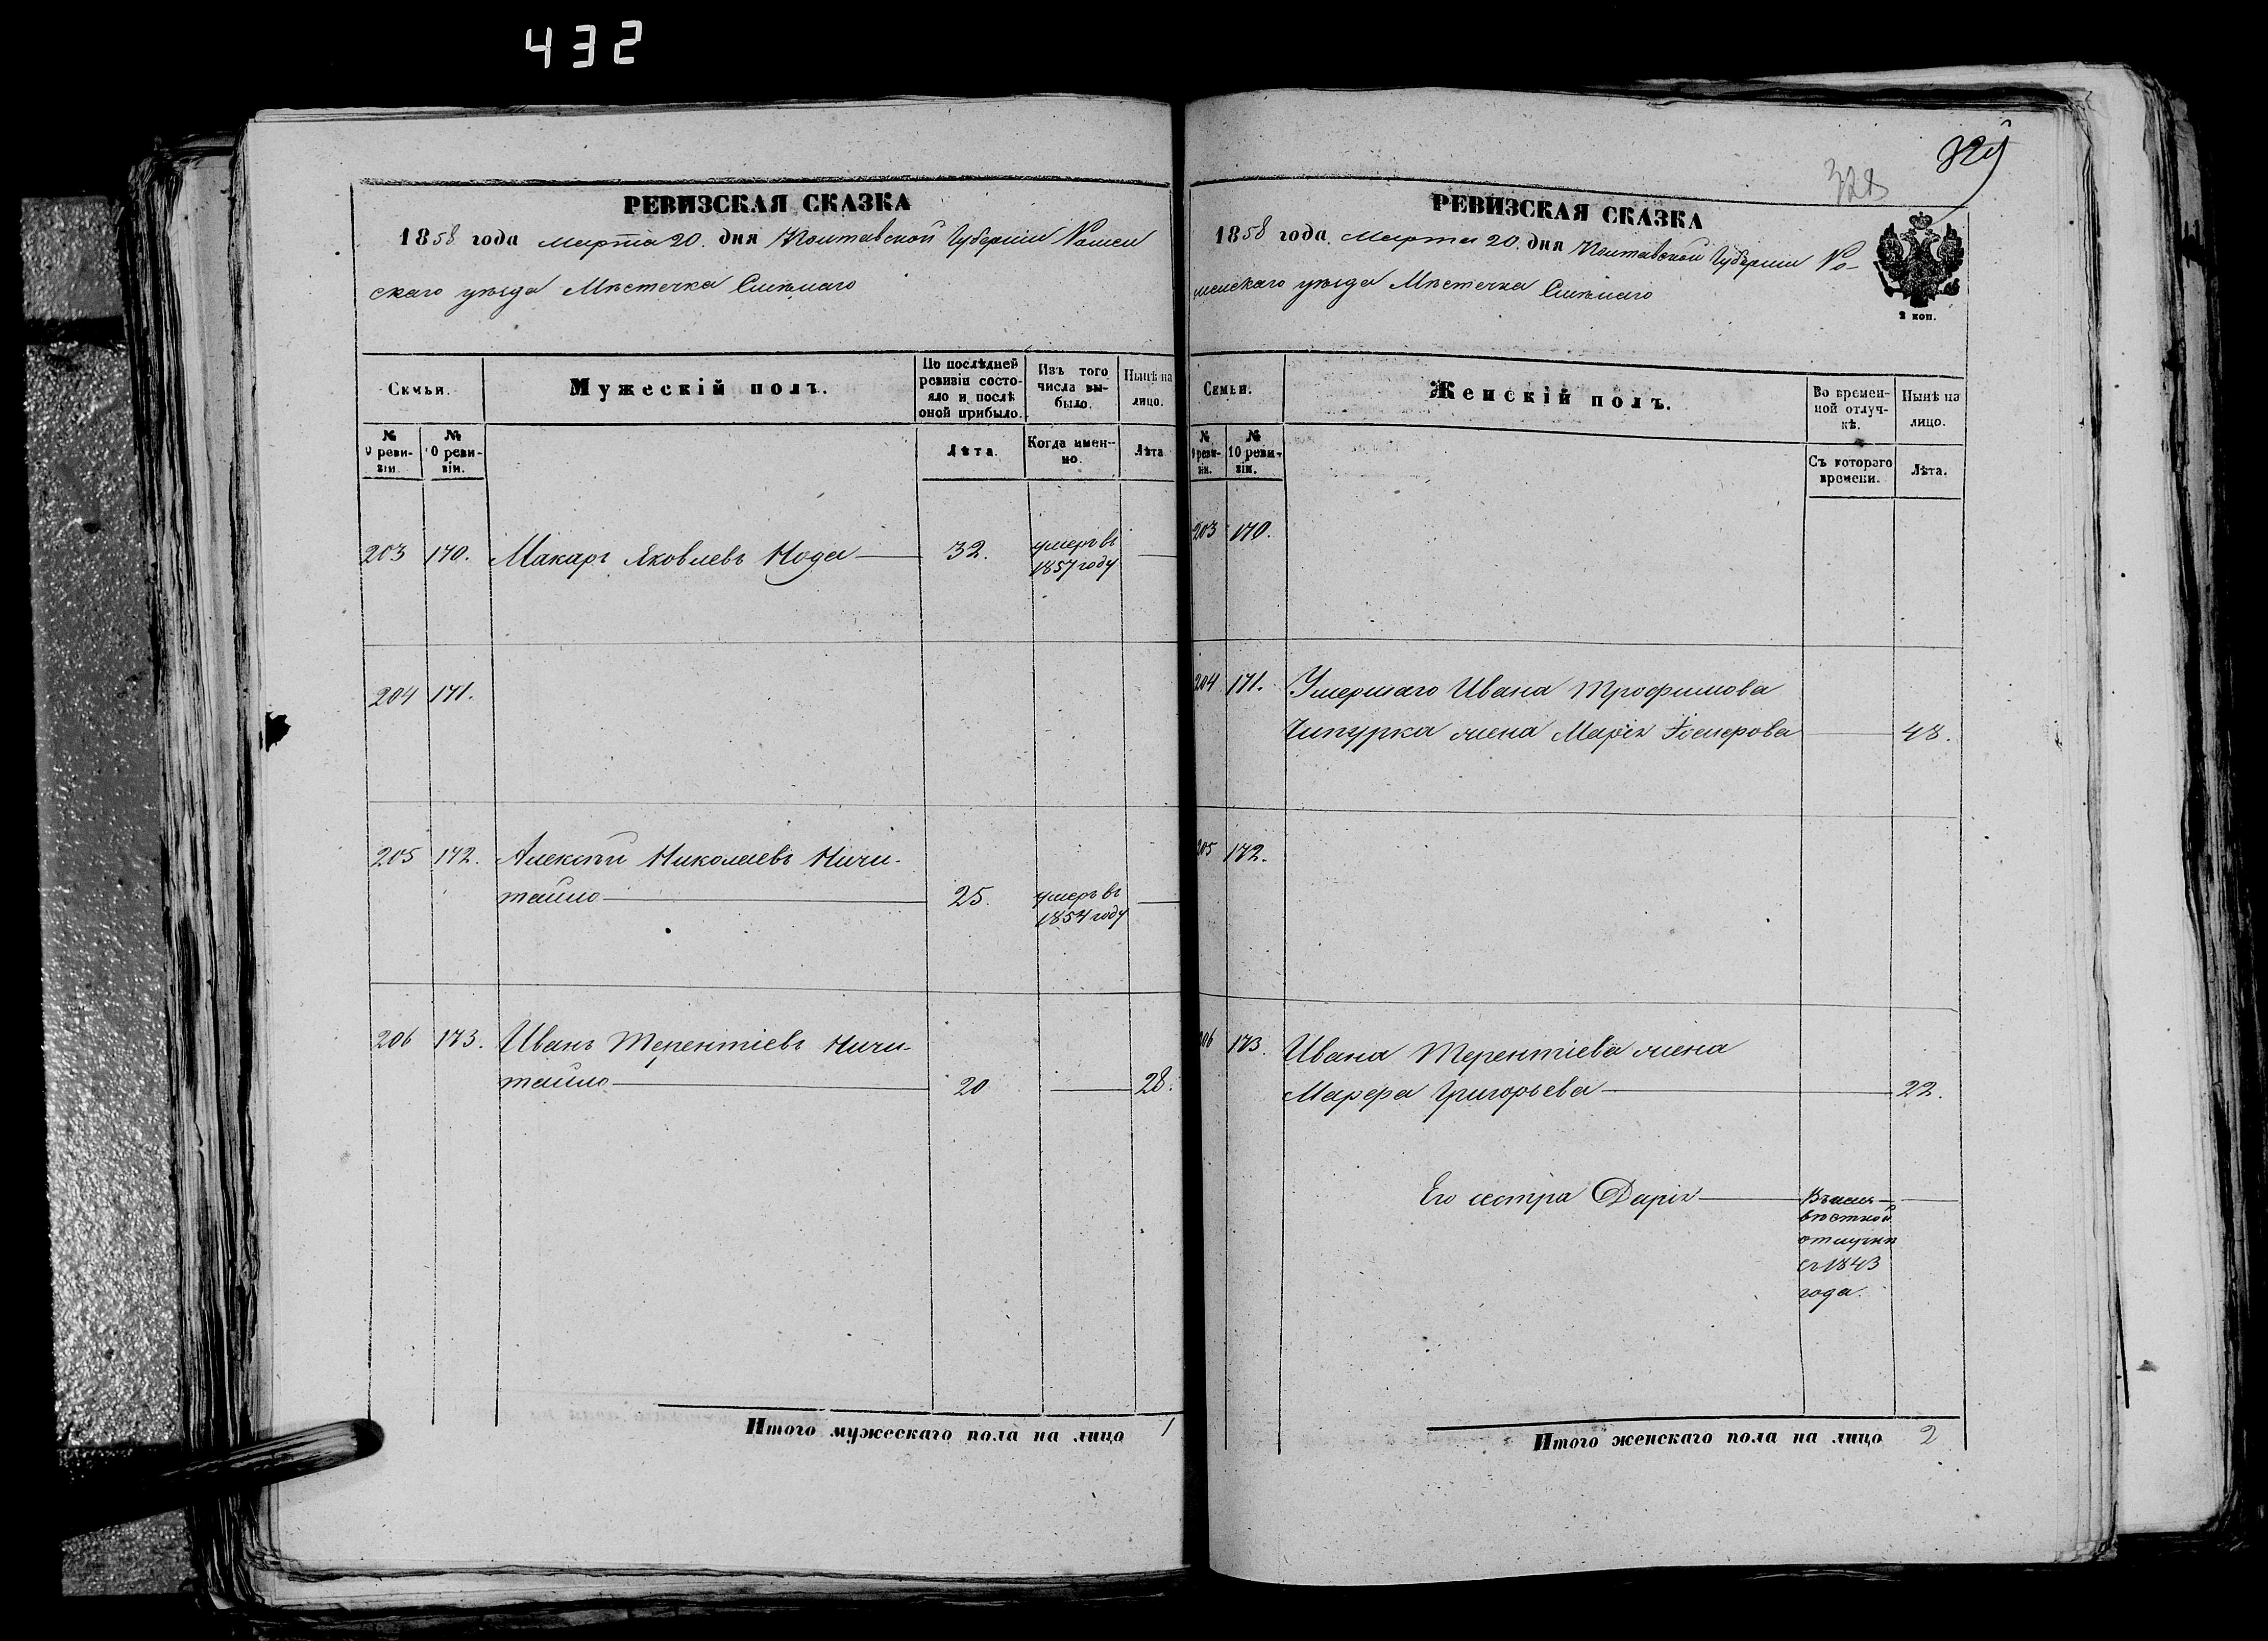 432
РЕВИЗСКАЯ СКАЗКА
1858 года Марта 20. дня Полтавской Губерніи Ромен
скаго уѣзда Мѣстечка Смѣлаго
Семьи.
Мужескій полъ.
По послѣдней ревизіи состояло и послѣ оной прибыло.
Изъ того числа выбыло.
Нынѣ на лицо.
№ 9 ревизіи.
№ 10 ревизіи.
Лѣта.
Когда именно.
Лѣта
203 170. Макаръ Яковлевъ Нода 32. умеръ въ
1857 году
204 171.
205 172. Алексѣй Николаевъ Ничи-
тайло 25. умеръ въ
1854 году
206 173. Иванъ Терентіевъ Ничи-
тайло 20 28.
Итого мужескаго пола на лицо 1
329
328
РЕВИЗСКАЯ СКАЗКА
1858 года Марта 20. дня Полтавской Губерніи Ро-
менскаго уѣзда Мѣстечка Смѣлаго
2 коп.
Семьи.
Женскій полъ.
Во временной отлучкѣ.
Нынѣ на лицо.
№ 9 ревизіи.
№ 10 ревизіи.
Съ котораго времени.
Лѣта.
203 170.
204 171. Умершаго Ивана Трофимова
Чипурка жена Марія 48.
205 172.
206 173. Ивана Терентіева жена
Марѳа Григорьева 22.
Его сестра Дарія Въ неиз-
вѣстной
отлучкѣ
съ 1843
года.
Итого женскаго пола на лицо 2